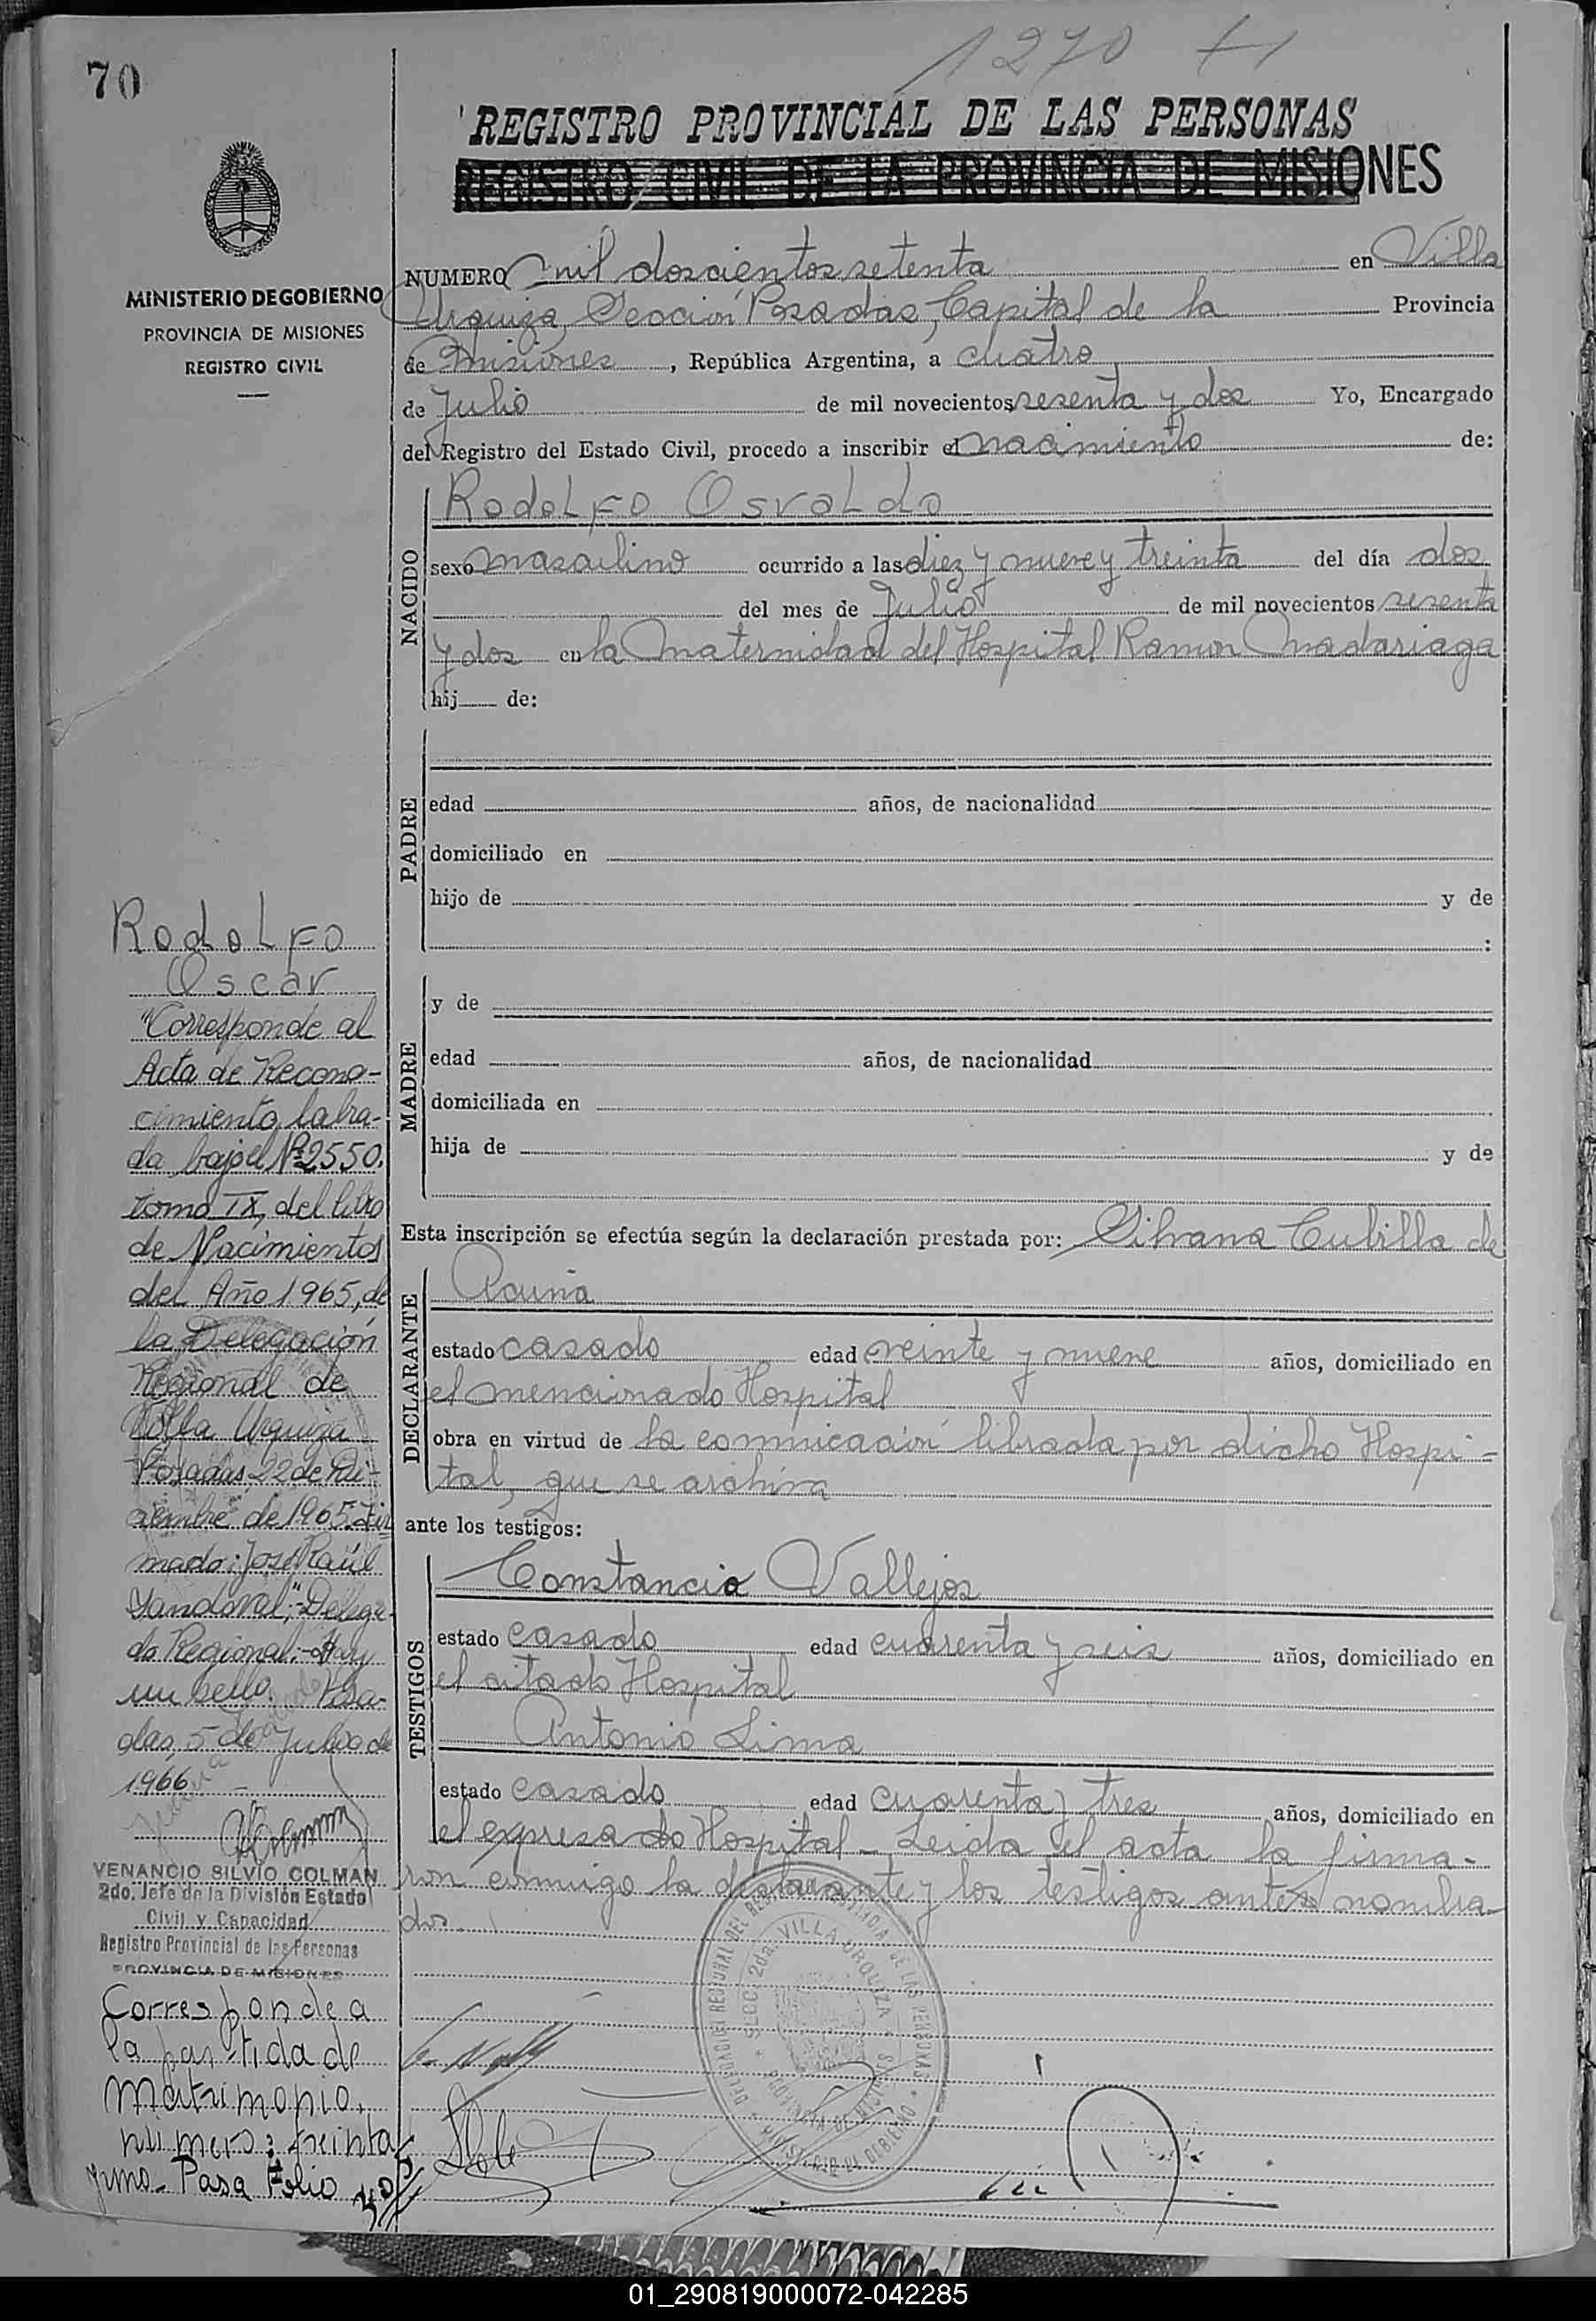 70
1270 f1
REGISTRO PROVINCIAL DE LAS PERSONAS
REGISTRO CIVIL DE LA PROVINCIA DE MISIONES
MINISTERIO DE GOBIERNO
PROVINCIA DE MISIONES
REGISTRO CIVIL
NUMERO mil doscientos setenta en Villa
Urquiza, Sección Posadas, Capital de la Provincia
de Misiones, República Argentina, a cuatro
de Julio de mil novecientos sesenta y dos Yo, Encargado
del Registro del Estado Civil, procedo a inscribir el nacimiento de:
NACIDO
Rodolfo Osvaldo
sexo masculino ocurrido a las diez y nueve y treinta del día dos
del mes de Julio de mil novecientos sesenta
y dos en la Maternidad del Hospital Ramon Madariaga
hij de:
PADRE
edad años, de nacionalidad
domiciliado en
hijo de y de
:
MADRE
y de
edad años, de nacionalidad
domiciliada en
hija de y de
Esta inscripción se efectúa según la declaración prestada por: Silvana Cubilla de
DECLARANTE
Acuña
estado casado edad veinte y nueve años, domiciliado en
el mencionado Hospital
obra en virtud de la comunicación librada por dicho Hospi-
tal, que se archiva
ante los testigos:
TESTIGOS
Constancio Vallejos
estado casado edad cuarenta y seis años, domiciliado en
el citado Hospital
Antonio Lima
estado casado edad cuarenta y tres años, domiciliado en
el expresado Hospital - Leida el acta la firma-
ron conmigo la declarante y los testigos antes nombra-
dos.
Rodolfo
Oscar
"Corresponde al
Acta de Recono-
cimiento labra-
da bajo el Nº 2550,
tomo IX, del libro
de Nacimientos
del Año 1965, de
la Delegación
Regional de
Villa Urquiza
Posadas, 22 de Di-
ciembre de 1965. Fir
mado: José Raúl
Sandoval"; Delega-
do Regional.- Hay
un sello. Posa-
das, 5 de Julio de
1966
VENANCIO SILVIO COLMAN
2do. Jefe de la División Estado
Civil y Capacidad
Registro Provincial de las Personas
PROVINCIA DE MISIONES
Corresponde a
la partida de
Matrimonio.
número: treinta
y uno - Pasa Folio
SECC. 2da. VILLA URQUIZA
PROVINCIA DE MISIONES
MINISTERIO DE GOBIERNO
01_290819000072-042285